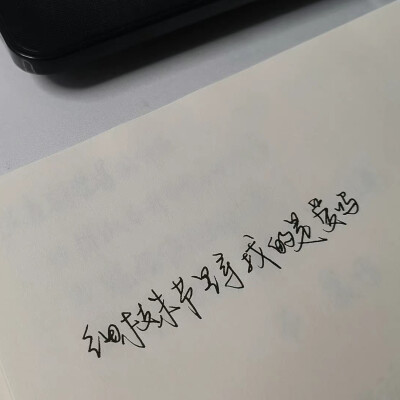 细枝末节里寻找的是爱吗